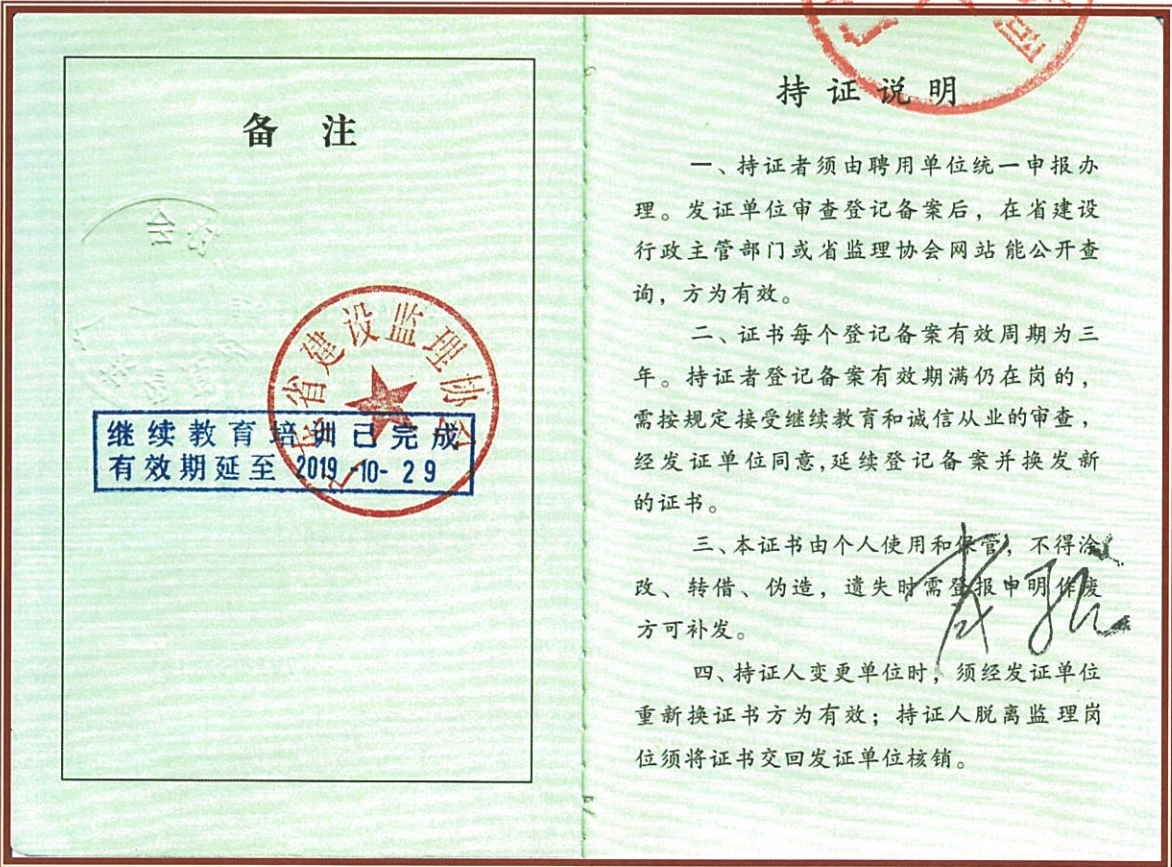 备 注
省建设监理协会
继续教育培训已完成
有效期延至 2019-10-29
持证说明
一、持证者须由聘用单位统一申报办
理。发证单位审查登记备案后，在省建设
行政主管部门或省监理协会网站能公开查
询，方为有效。
二、证书每个登记备案有效周期为三
年。持证者登记备案有效期满仍在岗的，
需按规定接受继续教育和诚信从业的审查，
经发证单位同意，延续登记备案并换发新
的证书。
三、本证书由个人使用和保管，不得涂
改、转借、伪造，遗失时需登报申明作废
方可补发。
四、持证人变更单位时，须经发证单位
重新换证书方为有效；持证人脱离监理岗
位须将证书交回发证单位核销。